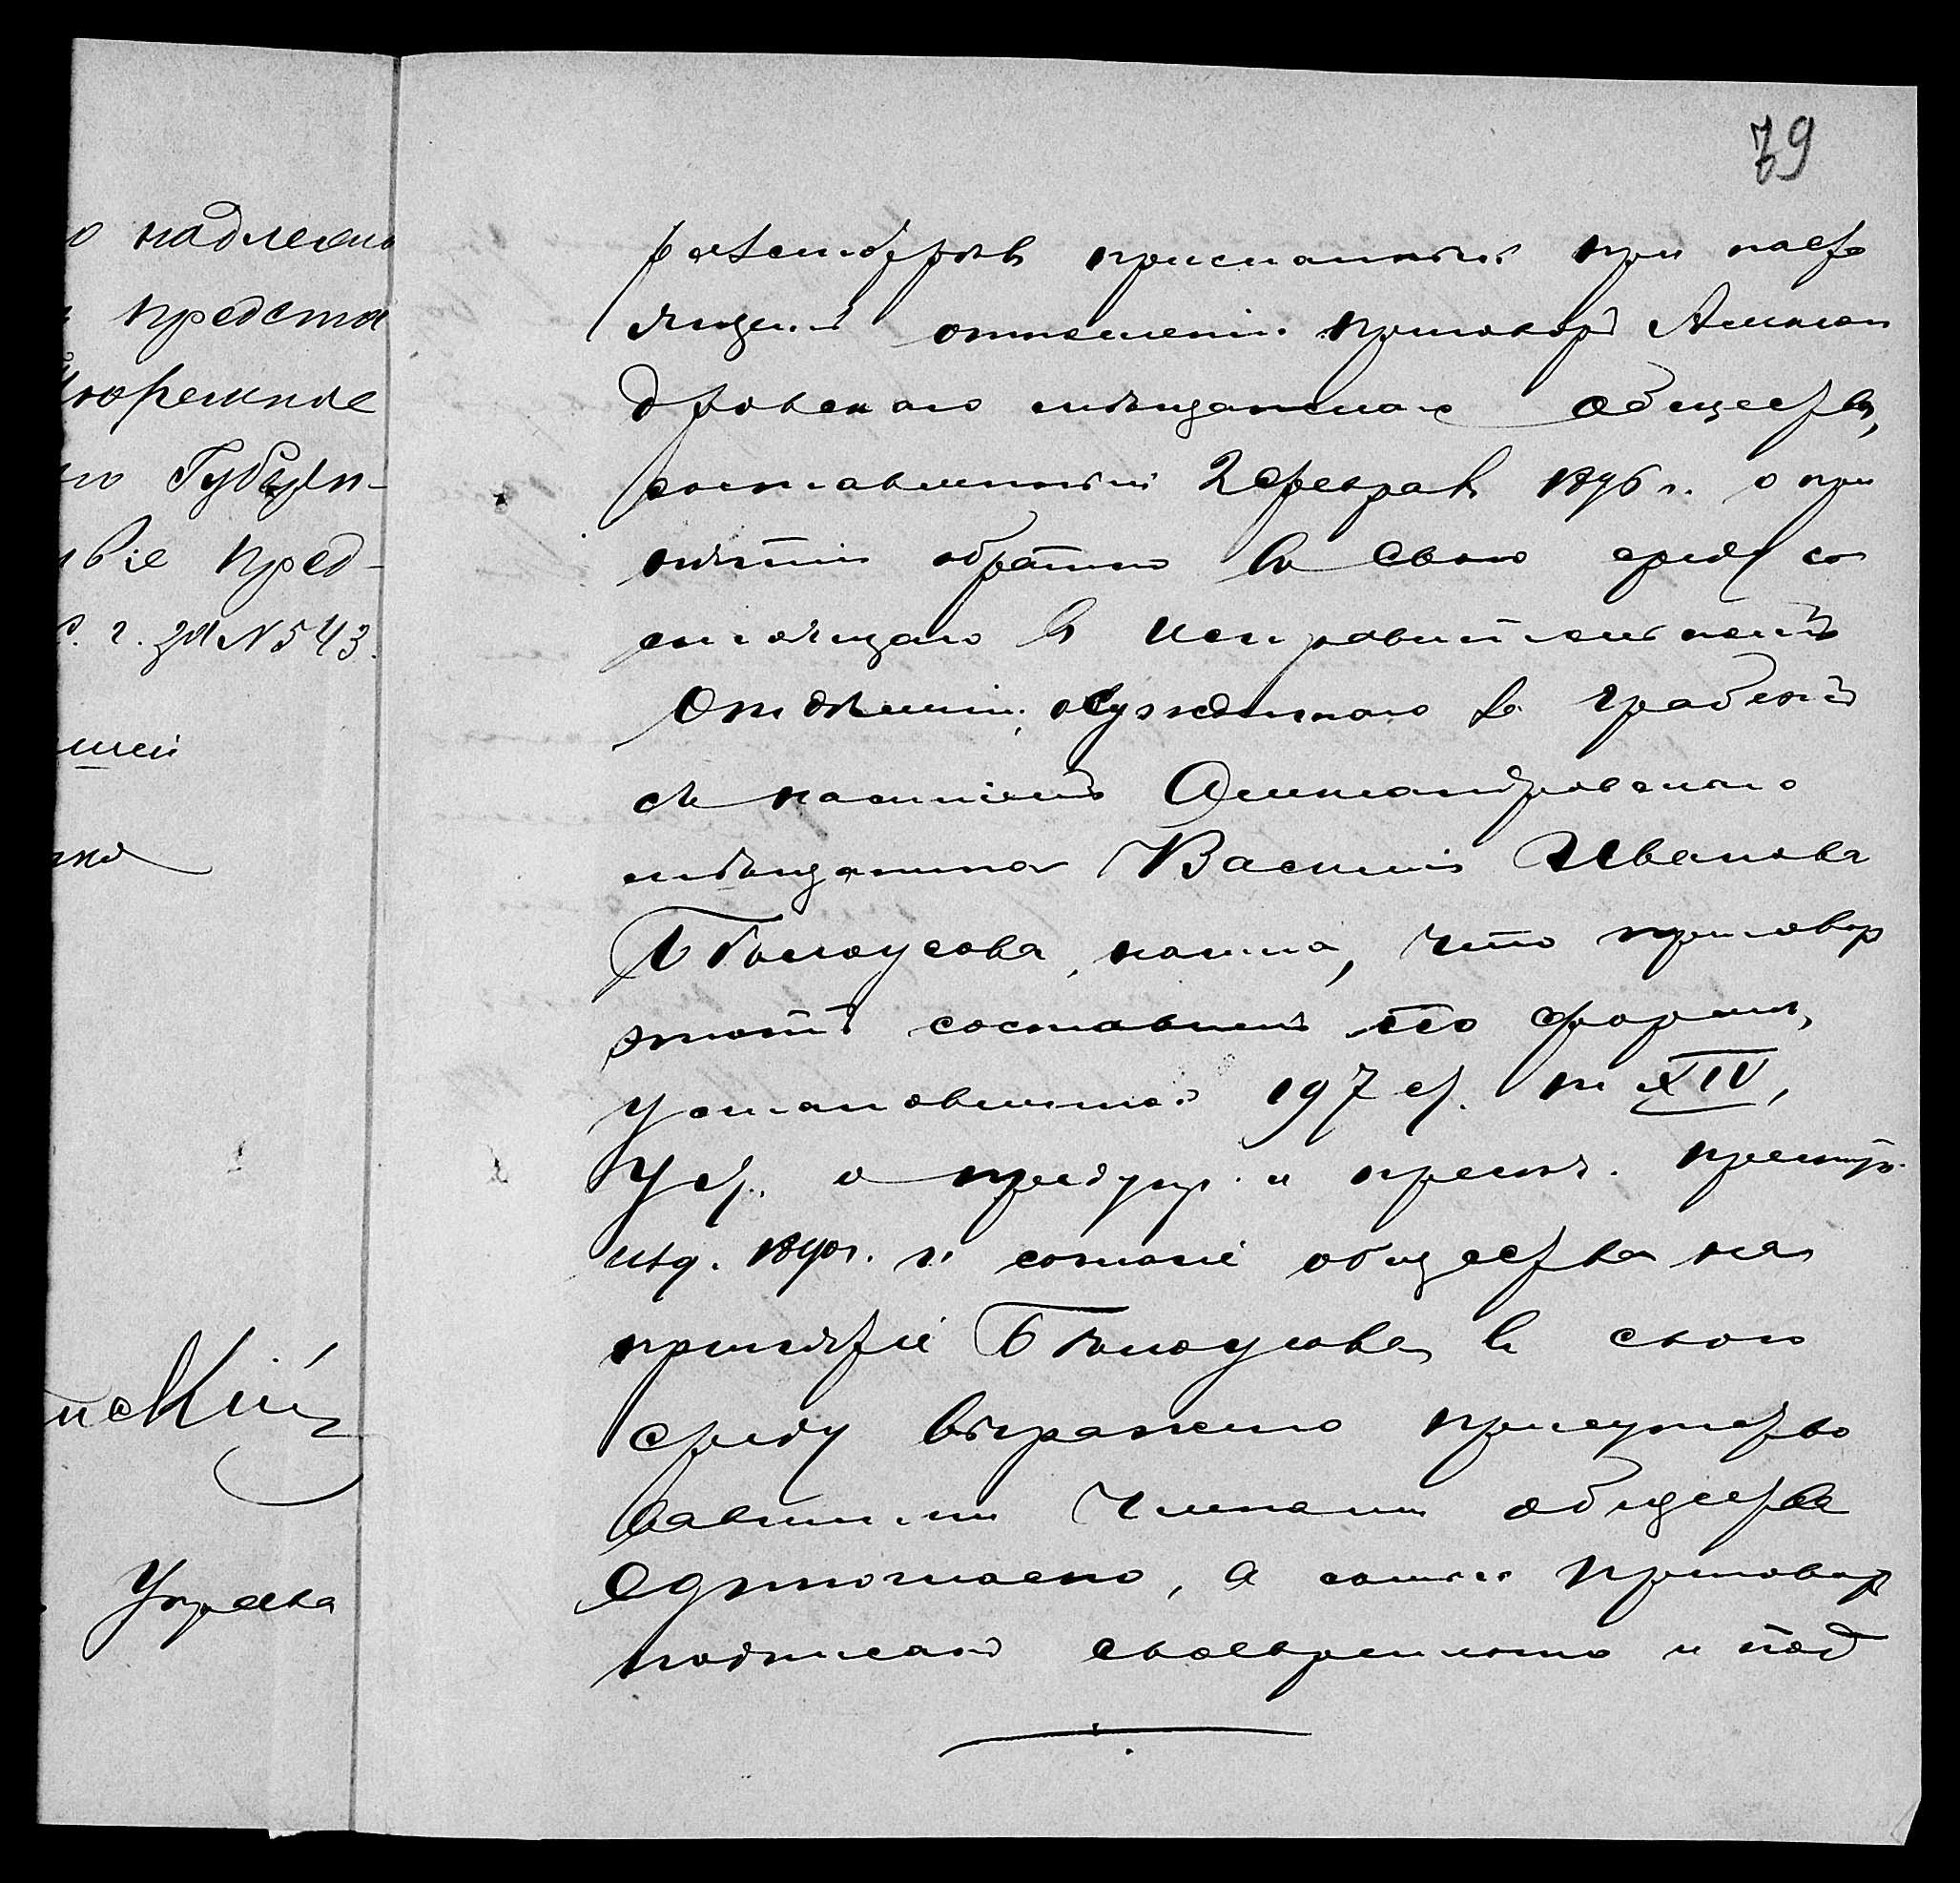 79
о надлежа
предста
тюремное
Губерн-
віе пред-
с. г. за N 543.
скій
Управа
разсмотрѣвъ присланный при насто
ящемъ отношеніи приговоръ Алексан
дровскаго мѣщанскаго общества,
составленный 2 февраля 1896 г. о при
нятіи обратно въ свою среду со
стоящаго въ исправительномъ
отдѣленіи, осужденнаго за грабежъ
съ насиліемъ Александровскаго
мѣщанина Василія Иванова
Бѣлоусова, нашла, что приговоръ
этотъ составленъ по формѣ,
установленной 197 ст. т. XIV,
Уст. о предупр. и пресѣч. преступ.
изд. 1890 г. согласіе общества на
принятіе Бѣлоусова въ свою
среду выражено присутство
вавшими членами общества
единогласно, а самый приговоръ
подписанъ своевременно и под